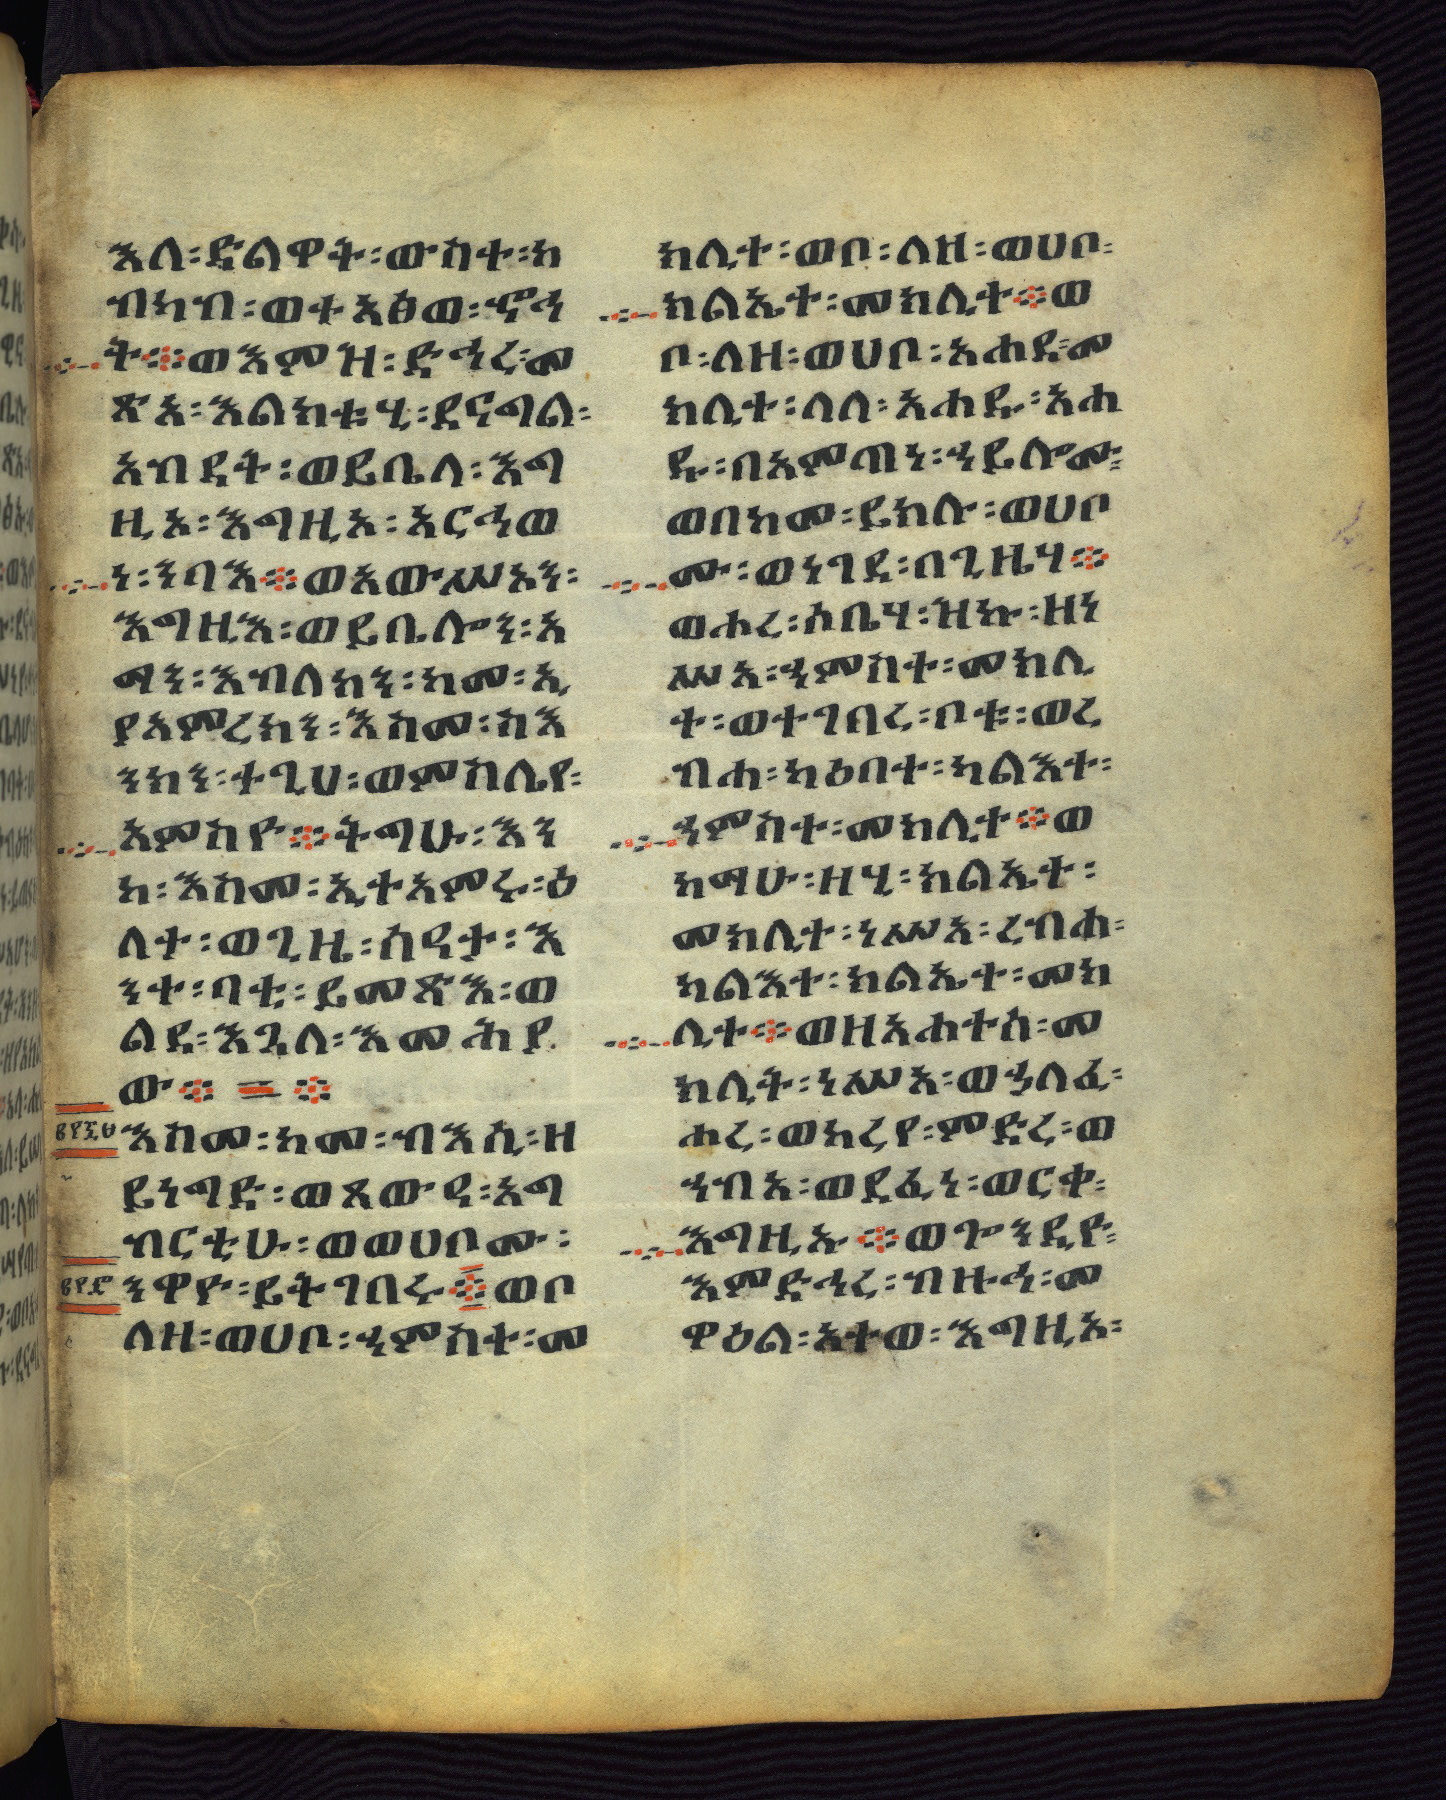 እለ፡ድልዋት፡ውስተ፡ከ
ብካብ፡ወተአፅወ፡ኆኅ
ት፨ወእምዝ፡ድኅረ፡መ
ጽአ፡እልክቱሂ፡ደናግል፡
አብዳት፡ወይቤላ፡እግ
ዚኦ፡እግዚኦ፡አርኅወ
ነ፡ኆኅተ፨ወአውሥአን፡
እግዚእ፡ወይቤሎን፡አ
ማን፡እብለክን፡ከመ፡ኢ
ያአምረክን፡እስመ፡ከእ
ንክን፡ትጊሀ፡ወምስሌየ፡
አምስዮ፨ትግሁ፡እን
ከ፡እስመ፡ኢተአምሩ፡ዕ
ለተ፡ወጊዜ፡ሰዓታ፡እ
ንተ፡ባቲ፡ይመጽእ፡ወ
ልደ፡እጓለ፡እመሕያ
ው፨ = ፨
፪፻፷፱
እስመ፡ከመ፡ብእሲ፡ዘ
ይነግድ፡ወጸውዓ፡አግ
ብርቲሁ፡ወወሀቦሙ፡
፪፻፸
ንዋዮ፡ይትገበሩ፨ወቦ
ለዘ፡ወሀቦ፡ኀምስተ፡መ
ክሊተ፡ወቦ፡ለዘ፡ወሀቦ፡
ክልኤተ፡መክሊተ፨ወ
ቦ፡ለዘ፡ወሀቦ፡አሐደ፡መ
ክሊተ፡ለለ፡አሐዱ፡አሐ
ዱ፡በአምጣነ፡ኀይሎሙ፡
ወበከመ፡ይክሉ፡ወሀቦ
ሙ፡ወነገደ፡በጊዜሃ፨
ወሐረ፡ሶቤሃ፡ዝኩ፡ዘነ
ሥአ፡ኀምስተ፡መክሊ
ተ፡ወተገበረ፡ቦቱ፡ወረ
ብሐ፡ካዕበተ፡ካልእተ፡
ኀምስተ፡መክሊተ፨ወ
ከማሁ፡ዘሂ፡ክልኤተ፡
መክሊተ፡ነሥአ፡ረብሐ፡
ካልእተ፡ክልኤተ፡መክ
ሊተ፨ወዘአሐተሰ፡መ
ክሊት፡ነሥአ፡ወኃለፈ፡
ሐረ፡ወከረየ፡ምድረ፡ወ
ኀብአ፡ወደፈነ፡ወርቀ፡
እግዚኡ፨ወጐንዲዮ፡
እምድኅረ፡ብዙኅ፡መ
ዋዕል፡አተወ፡እግዚአ፡